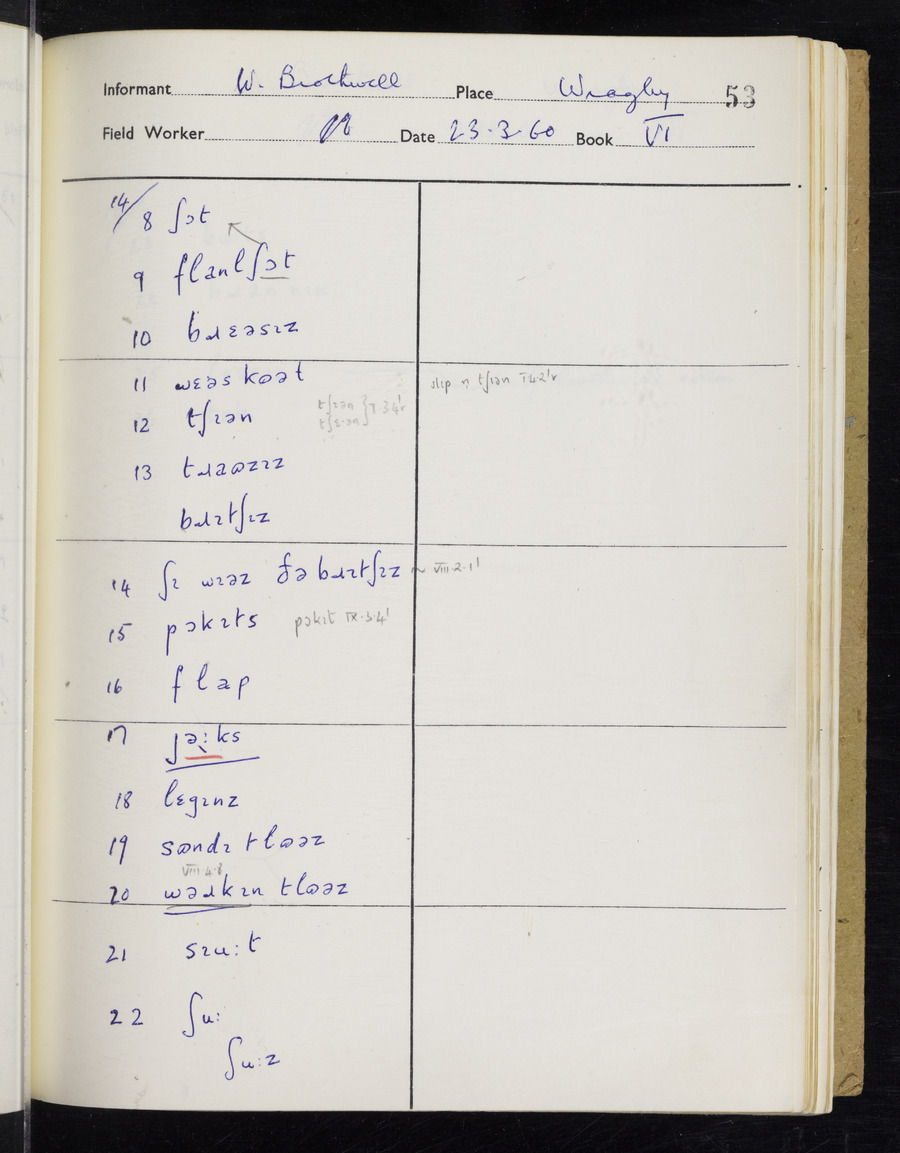 Informant W. Brothwell Place Wragby 53
Field Worker Date 23.3.60 Book VI
14/8 ʃɔt
9 flanlʃɔt
10 bɹɛəsɪz
11 wɛəs kɷət slɪp ɪ tʃɪən V.4.2'r
12 tʃɪən
tʃɪən } V.3.4'r
tʃɛ·ən
13 tɹaɷzɪz
bɹɪtʃɪz
14 ʃɪ wɪəz ðə bɹɪtʃɪz ~ VIII.2.1'
15 pɔkɪts pɔkɪt IX.3.4'
16 flap
17 jəː̣ks
18 lɛgɪnz
19 sɷndɪ tlɷəz
VIII.4.8
20 wəɹkɪn tlɷəz
21 sɪu:t
22 ʃu:
ʃu:z